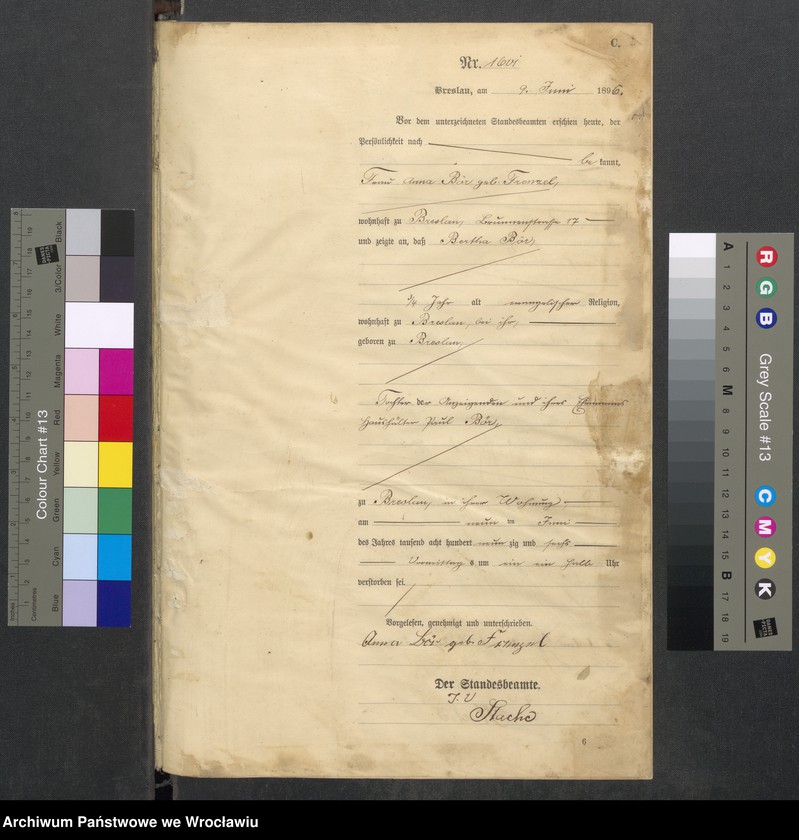 C.
Nr. 1601
Breslau, am 9. Juni 1896.
Vor dem unterzeichneten Standesbeamten erschien heute, der
Persönlichkeit nach
be kannt,
Frau Anna Bär geb. Frenzel,
wohnhaft zu Breslau, Brunnenstraße 17
und zeigte an, daß Bertha Bär,
3/4 Jahr alt evangelischer Religion,
wohnhaft zu Breslau, bei ihr,
geboren zu Breslau,
Tochter der Anzeigenden und ihres Ehemannes
Haushälter Paul Bär,
zu Breslau, in ihrer Wohnung
am neun ten Juni
des Jahres tausend acht hundert neun zig und sechs
Vormittag s um ein ein halb Uhr
verstorben sei.
Vorgelesen, genehmigt und unterschrieben.
Anna Bär geb. Frenzel
Der Standesbeamte.
I. V
Stache
6
Colour Chart #13
Blue
Cyan
Green
Yellow
Red
Magenta
White
3/Color
Black
Inches
Centimetres
Grey Scale #13
R
G
B
C
M
Y
K
A
1
2
3
4
5
6
M
8
9
10
11
12
13
14
15
B
17
18
19
Archiwum Państwowe we Wrocławiu